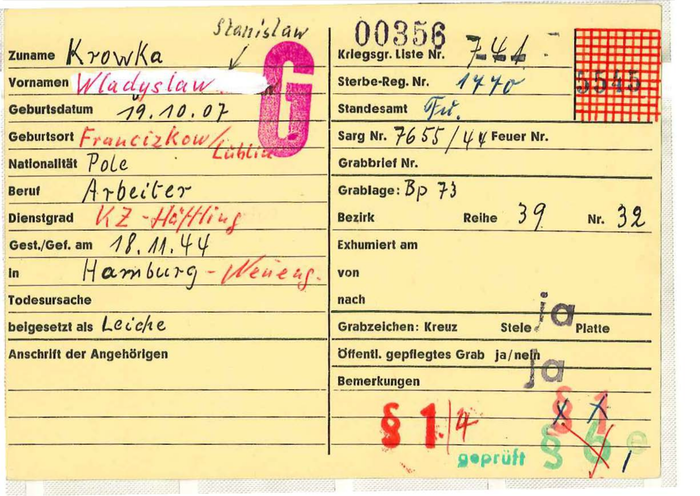 Stanislaw
Zuname Krowka
Vornamen Wladyslaw
G
Geburtsdatum 19.10.07
Geburtsort Francizkow/Lublin
Nationalität Pole
Beruf Arbeiter
Dienstgrad KZ-Häftling
Gest./Gef. am 18.11.44
in Hamburg-Neueng.
Todesursache
beigesetzt als Leiche
Anschrift der Angehörigen
00356
Kriegsgr. Liste Nr. 741
Sterbe-Reg. Nr. 1770
5545
Standesamt Fu.
Sarg Nr. 7655/44 Feuer Nr.
Grabbrief Nr.
Grablage: Bp 73
Bezirk Reihe 39 Nr. 32
Exhumiert am
von
nach
ja
Grabzeichen: Kreuz Stele Platte
Öffentl. gepflegtes Grab ja/nein
ja
Bemerkungen
§ 1/4 § 1
geprüft § 5 1